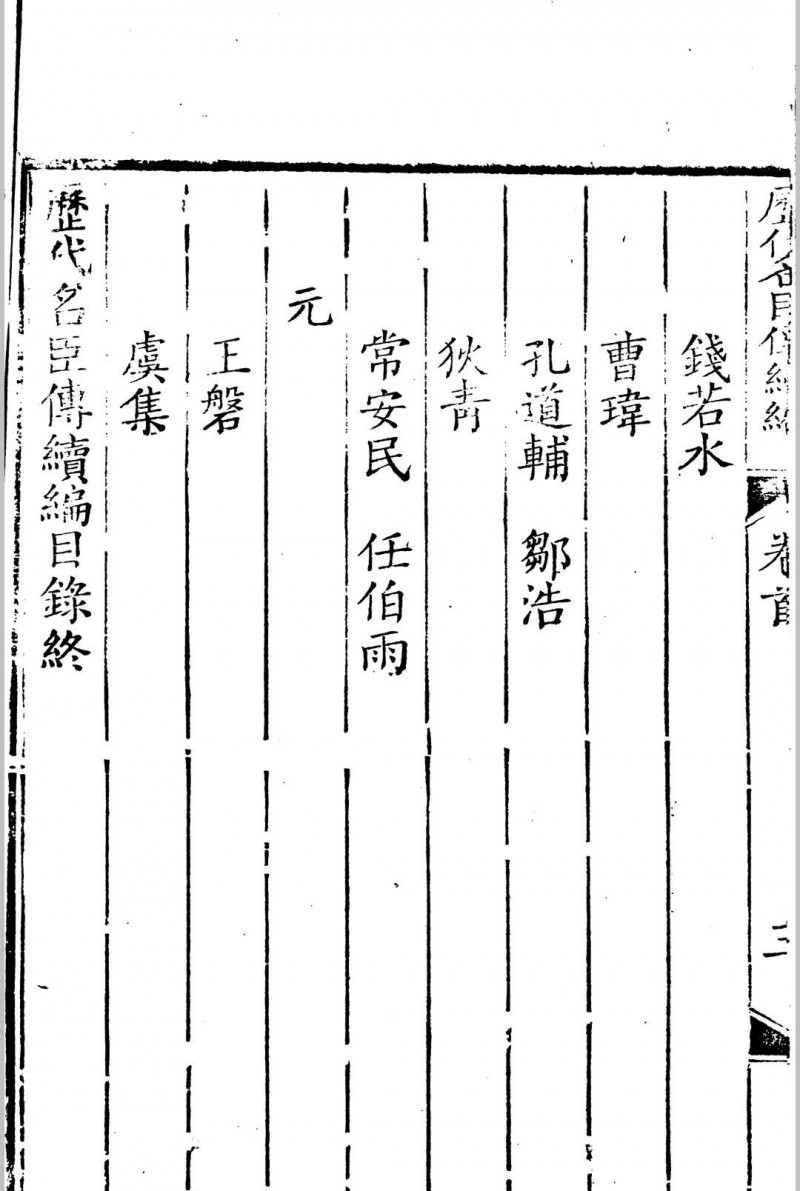 歷代名臣傳續編
卷首
三
錢若水
曹瑋
孔道輔　鄒浩
狄青
常安民　任伯雨
元
王磐
虞集
歷代名臣傳續編目錄終